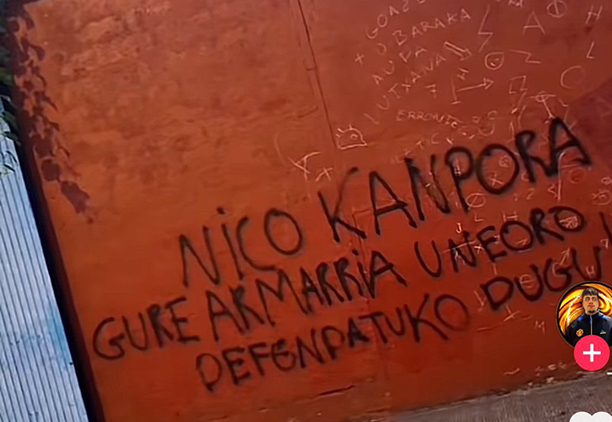 BARAKA
AUPA
ERRONTE
NICO KANPORA
GURE ARMARRIA UNEORO
DEFENDATUKO DUGU!